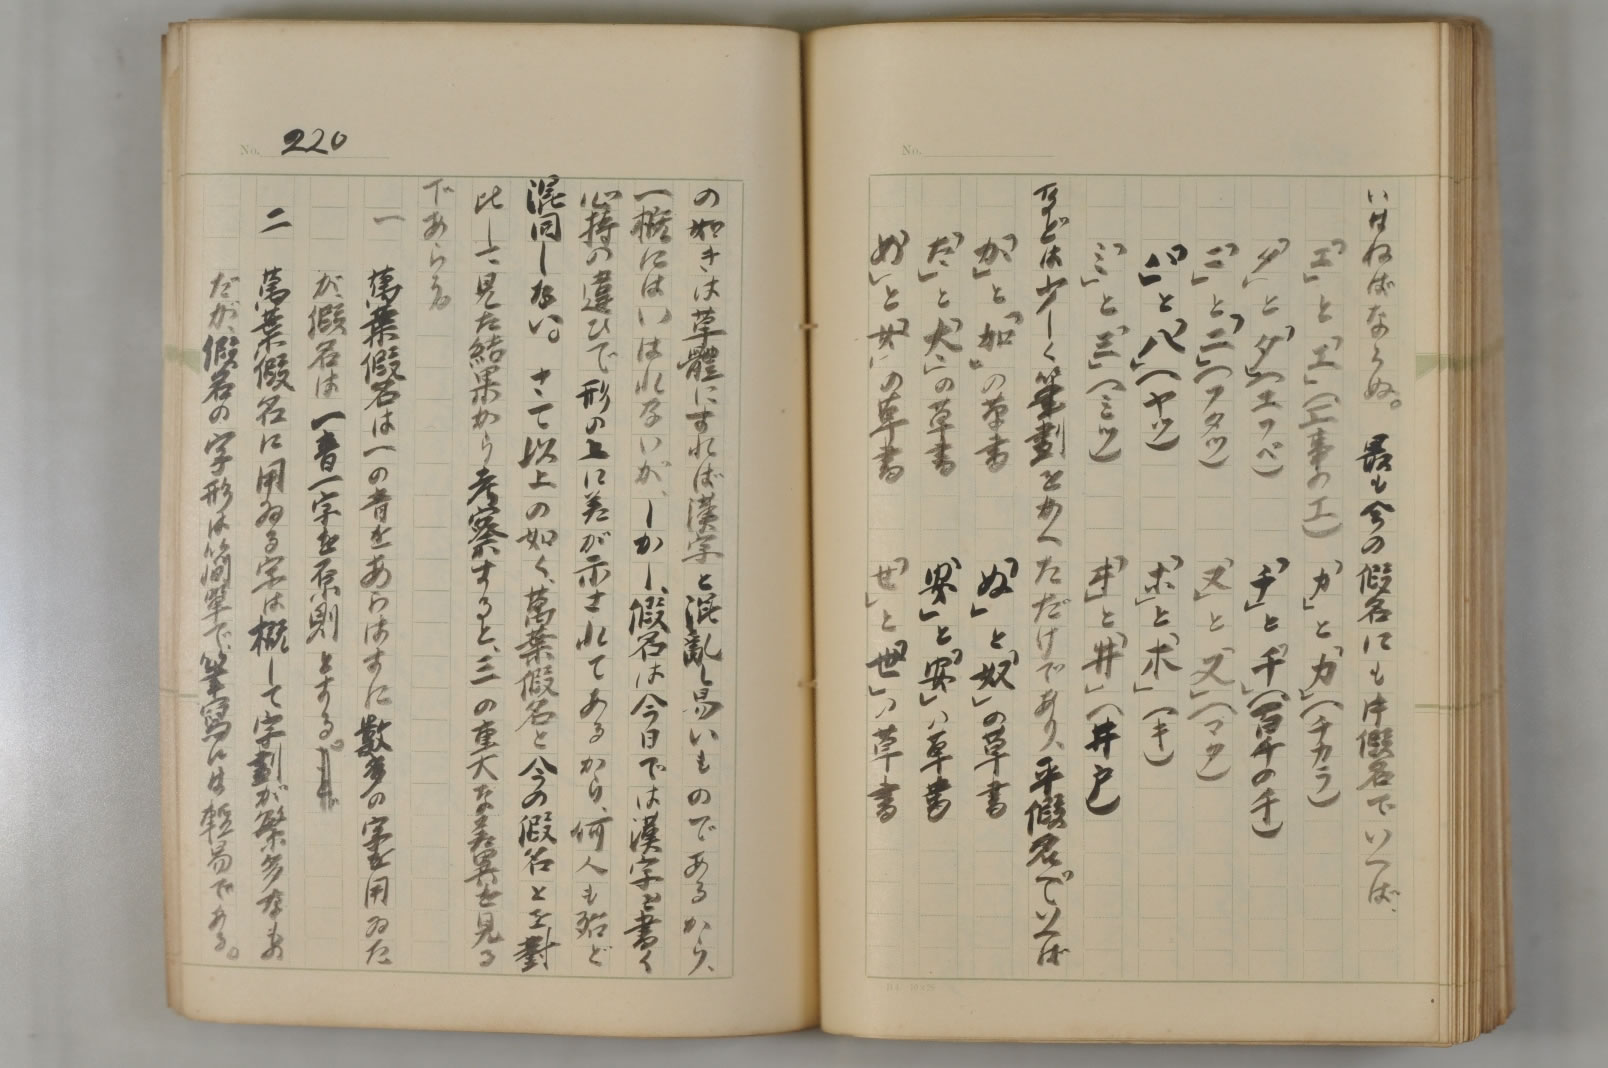 いはねばならぬ。最も今の假名にも片假名でいへば、
「エ」と「工」(工事の工)　「カ」と「力」(チカラ)
「タ」と「夕」(ユフベ)　「チ」と「千」(百千の千)
「ニ」と「二」(フタツ)　「ヌ」と「又」(マタ)
「ハ」と「八」(ヤツ)　「ホ」と「木」(キ)
「ミ」と「三」(ミツ)　「ヰ」と「井」(井戸)
などは少しく筆劃をかへただけであり、平假名でいへば
「か」と「加」の草書　「ぬ」と「奴」の草書
「た」と「太」の草書　「あ」と「安」の草書
「め」と「女」の草書　「せ」と「世」の草書
No.
No. 220
の如きは草體にすれば漢字と混亂し易いものであるから、
一概にはいはれないが、しかし、假名は今日では漢字を書く
心持の違ひで形の上に差が示されてあるから、何人も殆ど
混同しない。さて以上の如く、萬葉假名と今の假名とを對
比して見た結果から考察すると、三の重大な差異を見る
であらう。
一　萬葉假名は一の音をあらはすに數多の字を用ゐた
が、假名は一音一字を原則とする。
二　萬葉假名に用ゐる字は概して字劃が繁多なもの
だが、假名の字形は簡單で筆寫には輕易である。